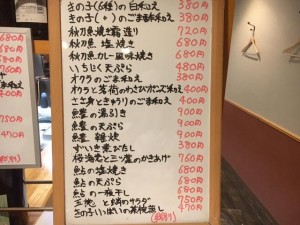 きの子(6種)の白和え 380円
きの子(+)のごま酢和え 380円
秋刀魚 焼き霜造り 720円
秋刀魚 塩焼き 680円
秋刀魚 カレー風味焼き 680円
いちじく天ぷら 480円
オクラのごま和え 380円
オクラと落荷のわさびポンズ和え 400円
ささ身ときゅうりのごま和え 400円
鱧の湯引き 900円
鱧の天ぷら 900円
鱧 900円
ずいき煮びたし 380円
桜海老と三ツ葉のかきあげ 760円
鮎の塩焼き 680円
鮎の天ぷら 680円
鮎の一夜干し 680円
サラダ 750円
きの子いっぱいの茶碗蒸し 470円